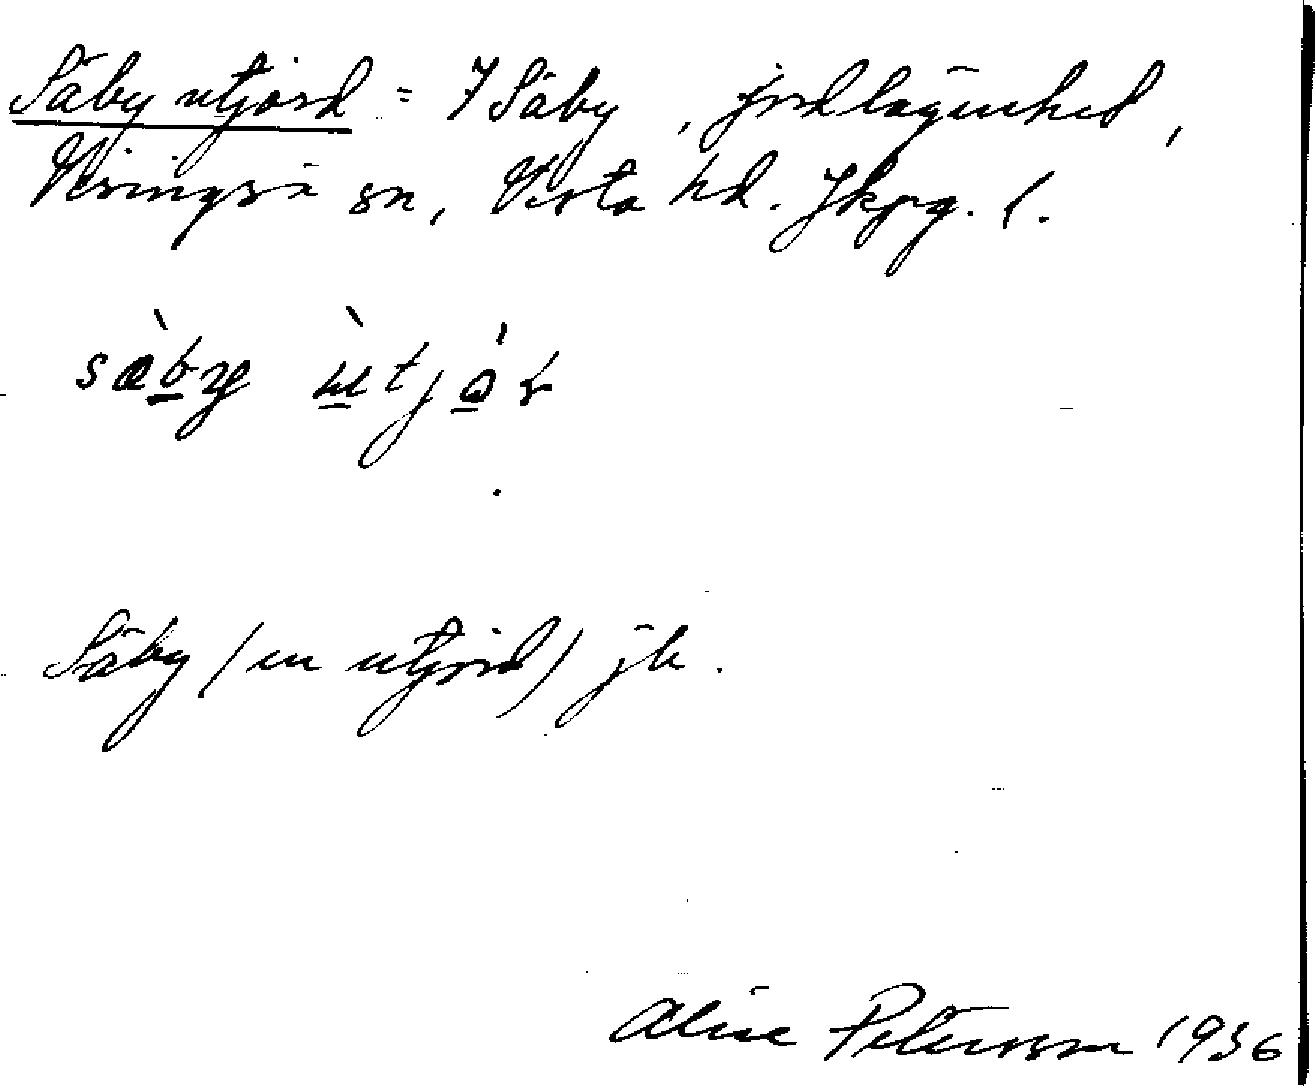 Säby utjord = 7 Säby, jordlägenhed,
Visingsö sn, Vista hd. Jkpg. l.
sæ̀by ùtjór
Säby (en utjord) jb.
Alice Petersson 1936